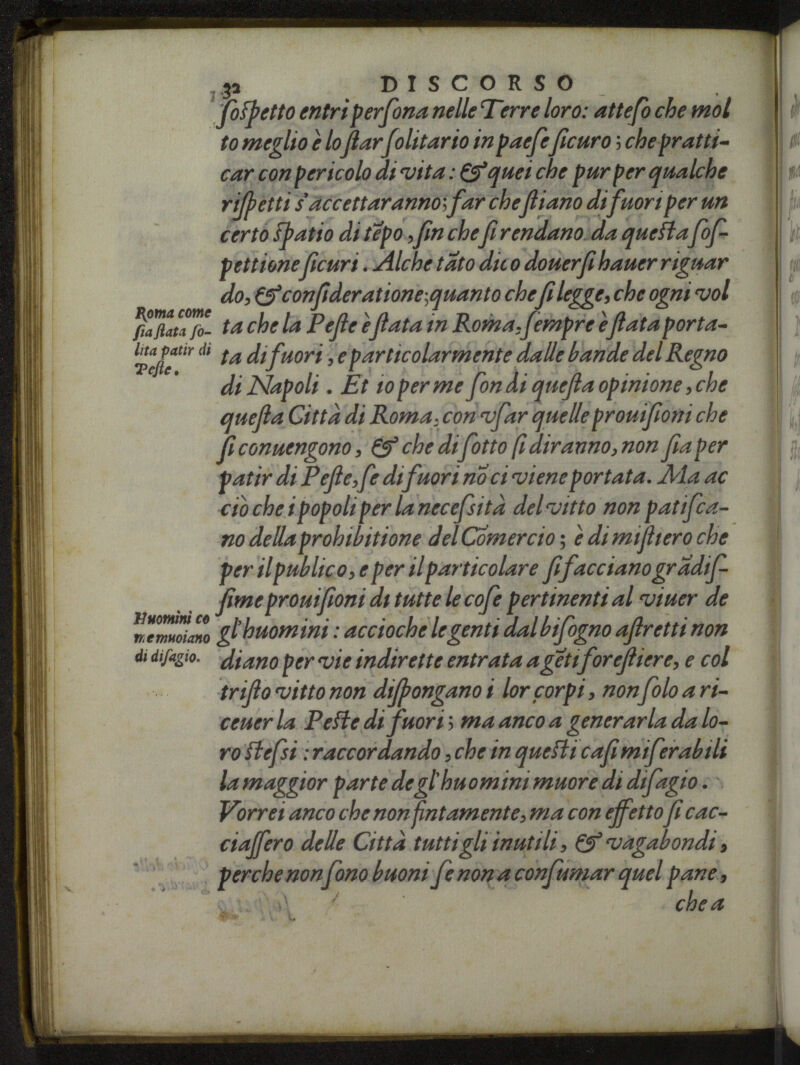 32 DISCORSO
ſoſpetto entri perſona nelle Terre loro: atteſo che mol
to meglio è lo ſtar ſolitario in paeſe ſicuro; che pratti-
car con pericolo di vita: & quei che pur per qualche
riſpetti s'accettaranno; far che ſtiano di fuori per un
certo ſpatio di tẽpo, ſin che ſi rendano da queſta ſoſ-
pettione ſicuri. Alche tãto dico douerſi hauer riguar
do, & conſideratione; quanto che ſi legge, che ogni vol
Roma come
ſia ſtata ſo-
lita patir di
Peſte.
ta che la Peſte è ſtata in Roma, ſempre è ſtata porta-
ta di fuori, e particolarmente dalle bande del Regno
di Napoli. Et io per me ſon di queſta opinione, che
queſta Città di Roma, con vſar quelle prouiſioni che
ſi conuengono, & che di ſotto ſi diranno, non ſia per
patir di Peſte, ſe di fuori nõ ci viene portata. Ma ac
ciò che i popoli per la neceſsità del vitto non patiſca-
no della prohibitione del Cõmercio; è di miſtiero che
per il publico, e per il particolare ſi facciano grãdiſ-
ſime prouiſioni di tutte le coſe pertinenti al viuer de
Huomini co
me muoiano
di diſagio.
gl'huomini: accioche le genti dal biſogno aſtretti non
diano per vie indirette entrata a gẽti foreſtiere, e col
triſto vitto non diſpongano i lor corpi, non ſolo a ri-
ceuer la Peſte di fuori; ma anco a generarla da lo-
ro ſteſsi: raccordando, che in queſti caſi miſerabili
la maggior parte de gl'huomini muore di diſagio.
Vorrei anco che non fintamente, ma con effetto ſi cac-
ciaſſero delle Città tutti gli inutili, & vagabondi,
perche non ſono buoni ſe non a conſumar quel pane,
che a